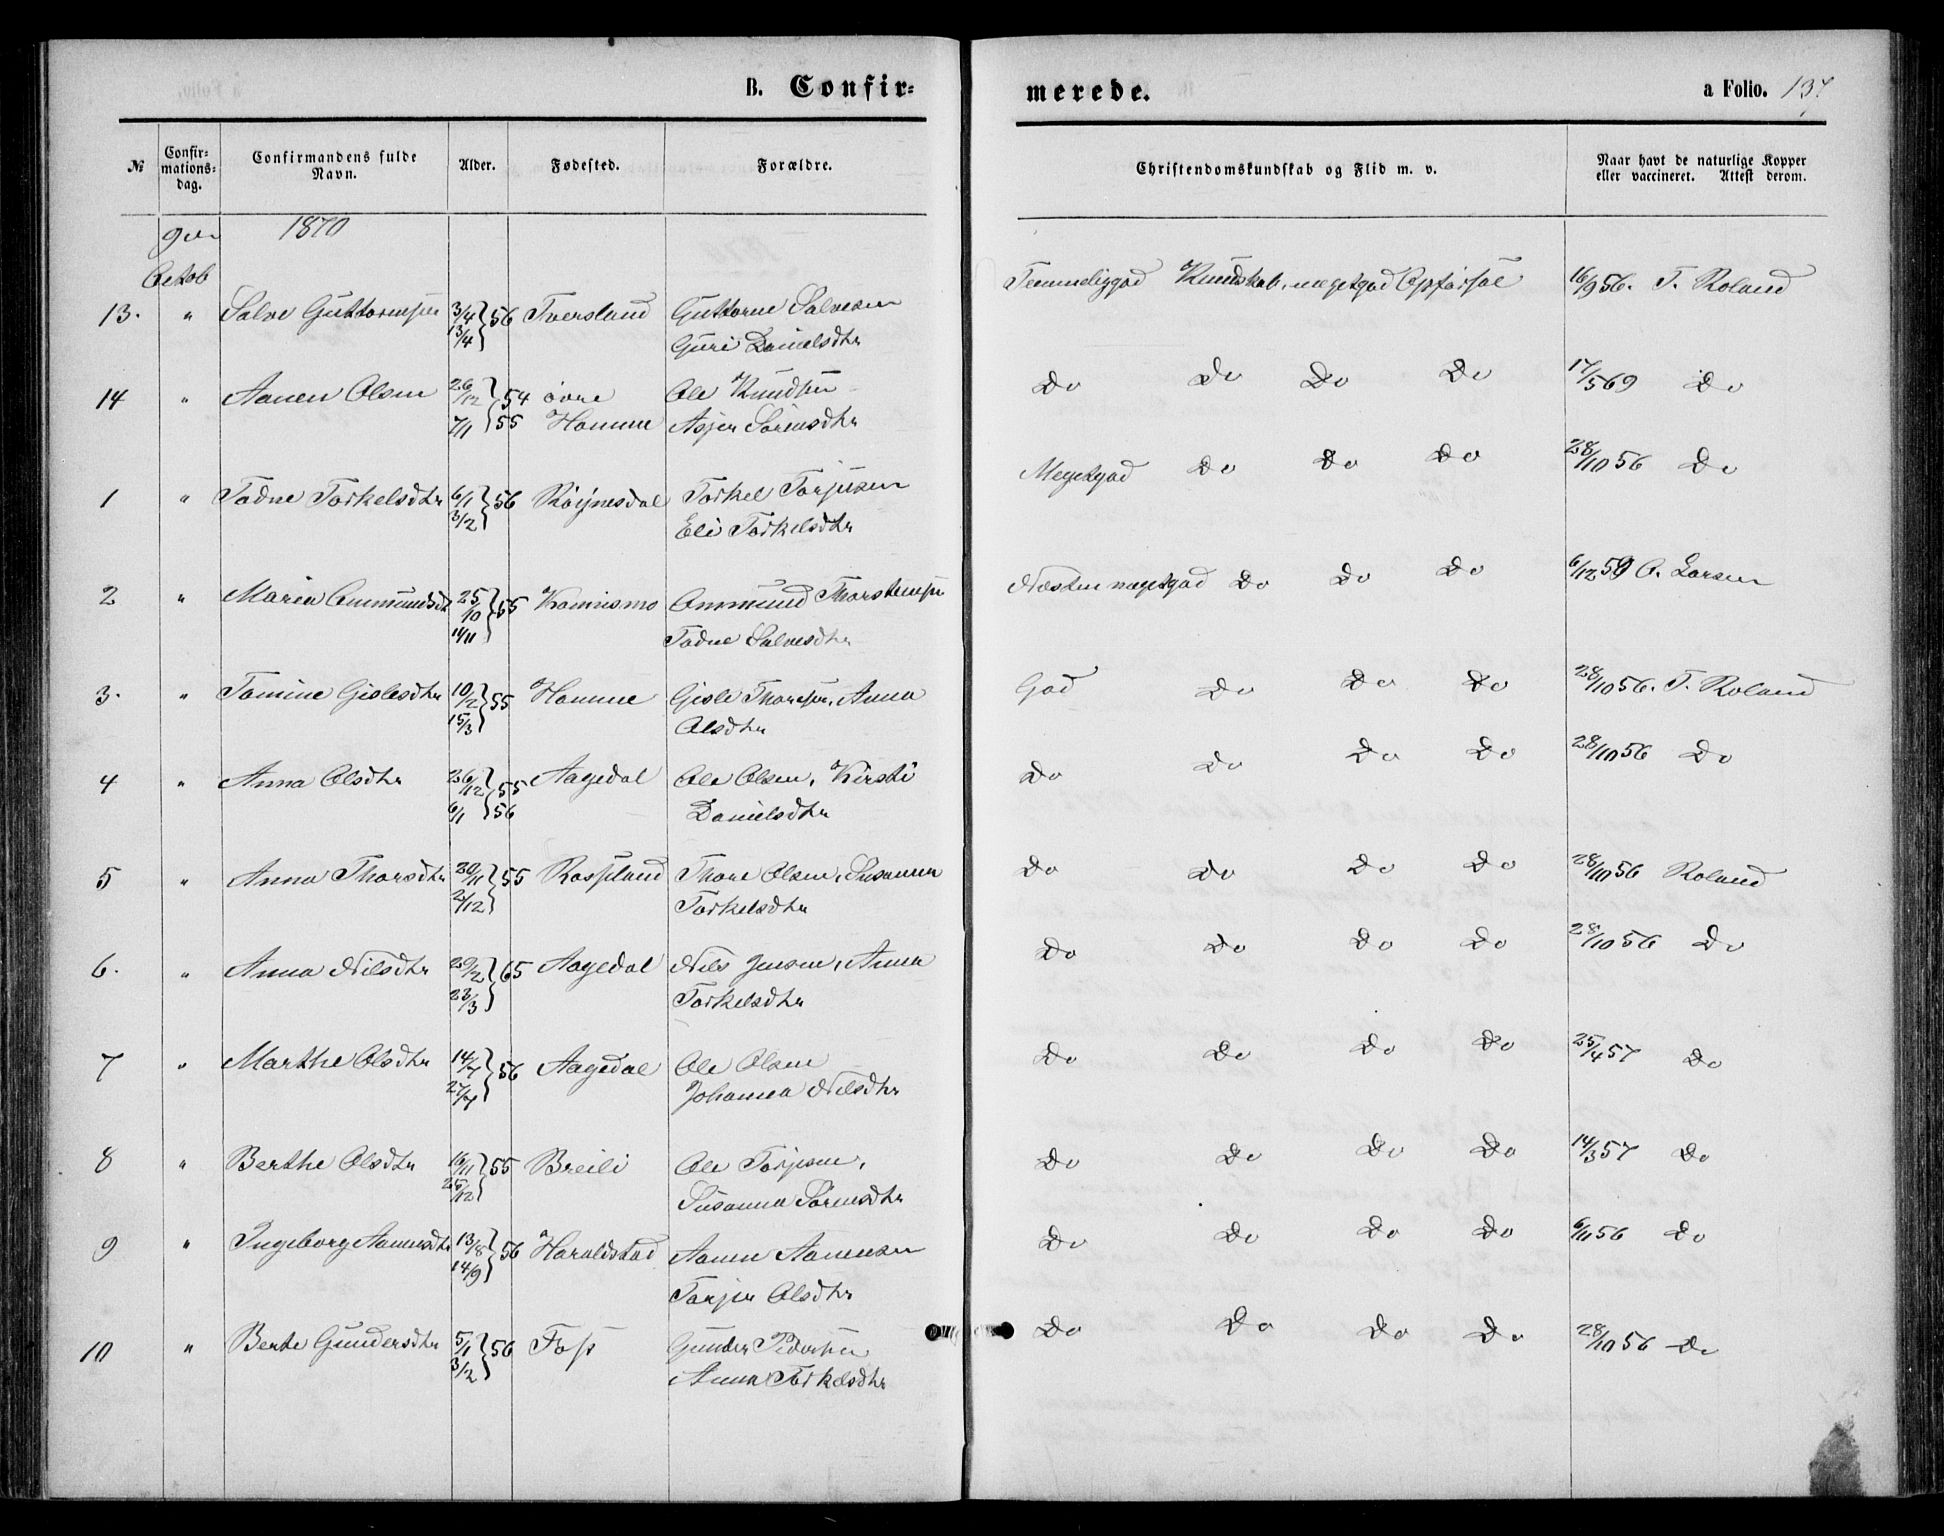 B. Confir= merede. a Folio. 137
№ Confir=mations=dag. Confirmandens fulde Navn. Alder. Fødested. Forældre. Christendomskundskab og Flid m. v. Naar havt de naturlige Kopper eller vaccineret. Attest derom.
9de 1870
Octob
Temmeliggod Kundskab, megetgod Opførsel 16/9 56. T. Roland
13. " Salve Guttormsen 3/4 13/4 } 56 Tversland Guttorm Salvesen
Guri Danielsdtr
14 " Aanen Olsen 26/12 54 7/1 55 øvre Homme Ole Knudsen Do Do Do Do 17/5 69 Do
Asjer Sørensdtr
1 " Todne Torkelsdtr 6/1 3/2 } 56 Røijnesdal Torkel Torjusen Megetgod Do Do Do 28/10 56 Do
Eli Torkelsdtr
2 " Maria Ommundsdt 25/10 14/11 } 55 Komismo Ommund Thorstensen Næsten megetgod Do Do Do 6/12 59 O. Larsen
Todne Salvesdtr
3. " Tomine Gislesdtr 10/2 15/3 } 55 Homme Gisle Thorsen, Anna God Do Do Do 28/10 56. T. Roland
Olsdtr
4 " Anna Olsdtr 26/12 55 6/1 56 Aagedal Ole Olsen, Kirsti Do Do Do Do 28/10 56 Do
Danielsdtr
5 " Anna Thorsdtr 20/11 2/12 } 55 Rossland Thore Olsen, Susanna Do Do Do Do 28/10 56 Roland
Torkelsdtr
6. " Anna Nilsdtr 20/2 23/3 } 65 Aagedal Nils Jensen, Anna Do Do Do Do 28/10 56 Do
Torkelsdtr
7 " Marthe Olsdtr 14/7 27/7 } 56 Aagedal Ole Olsen Do Do Do Do 25/4 57 Do
Johanna Nilsdtr
8 " Berthe Olsdtr 16/11 25/12 } 55 Breili Ole Torjesen, Do Do Do Do 14/3 57 Do
Susanna Sørensdtr
9 " Ingeborg Aanensdtr 13/8 14/9 } 56 Haraldstad Aanen Aanensen Do Do Do Do 6/11 56 Do
Torjer Olsdtr
10 " Berte Gundersdtr 5/1 3/2 } 56 Foss Gunder Pedersen Do Do Do Do 28/10 56 Do
Anna Torkelsdtr